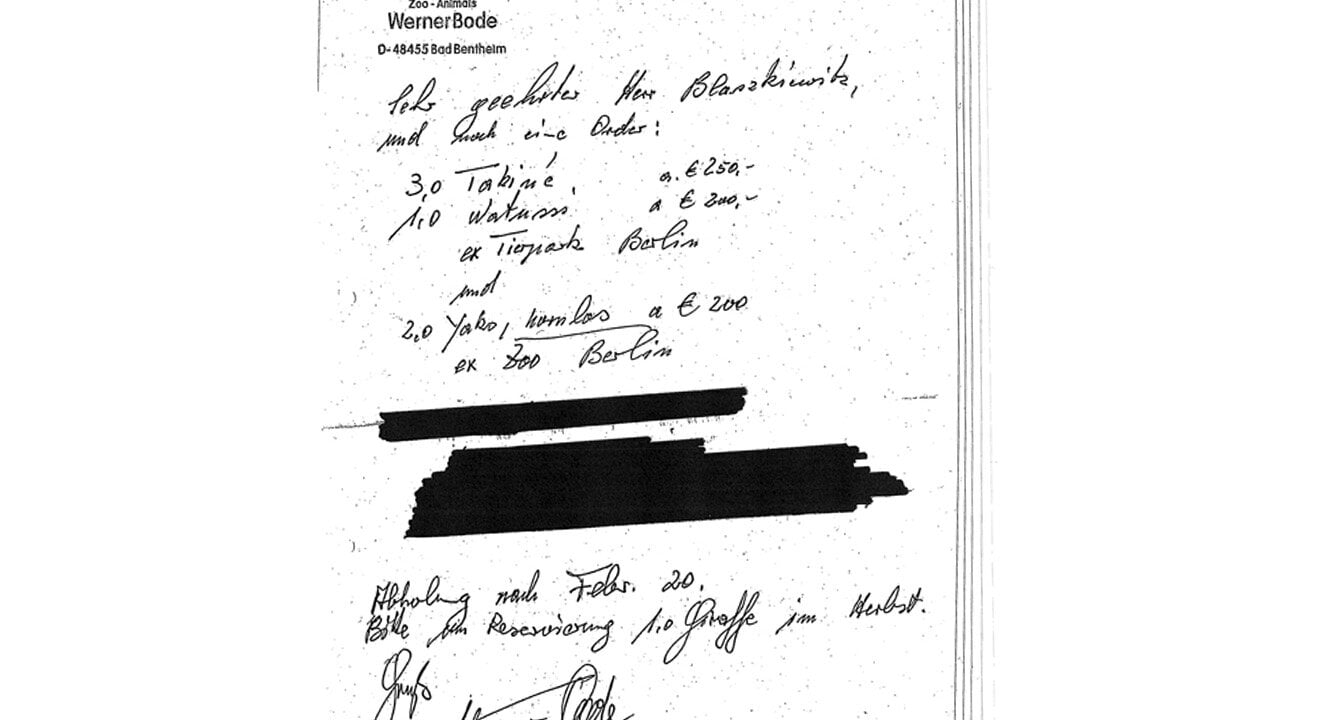 Zoo-Animals
Werner Bode
D-48455 Bad Bentheim
Sehr geehrter Herr Blaszkiewitz,
und noch eine Order:
3,0 Takine, a. € 250,-
1,0 Watussi a € 200,-
ex Tierpark Berlin
und
2,0 Yaks, hornlos a € 200
ex Zoo Berlin
Abholung nach Febr. 20.
Bitte um Reservierung 1.0 Giraffe im Herbst.
Gruß
Bode